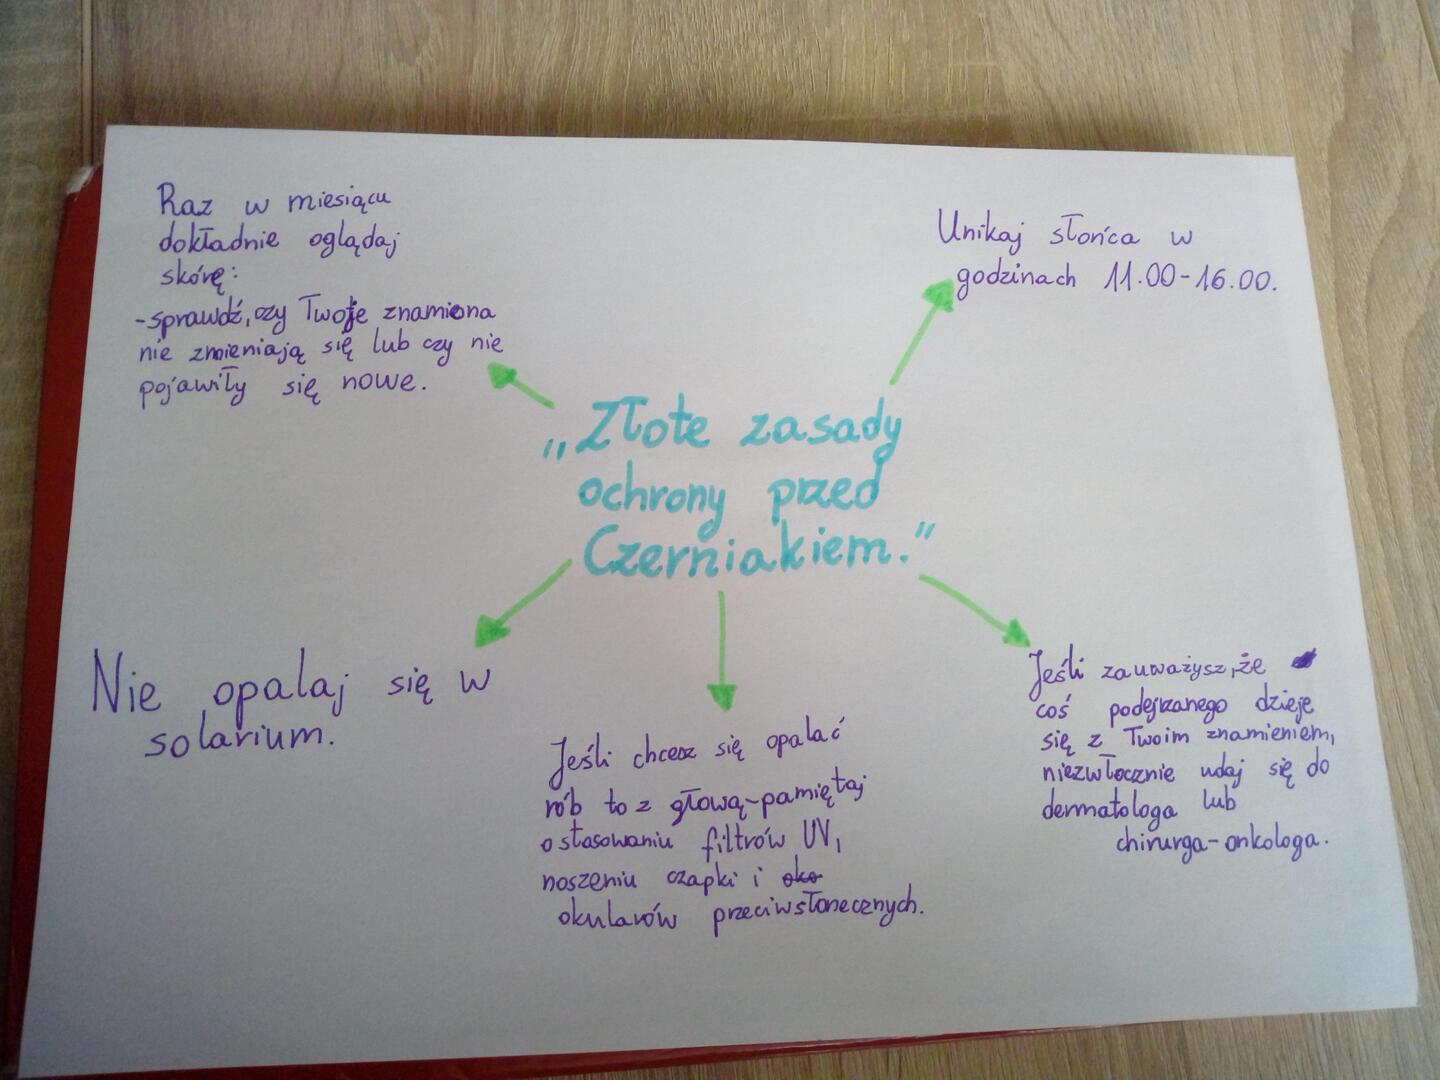 Raz w miesiącu
dokładnie oglądaj
skórę:
-sprawdź, czy Twoje znamiona
nie zmieniają się lub czy nie
pojawiły się nowe.
Unikaj słońca w
godzinach 11.00-16.00.
„Złote zasady
ochrony przed
Czerniakiem."
Nie opalaj się w
solarium.
Jeśli chcesz się opalać
rób to z głową-pamiętaj
o stosowaniu filtrów UV,
noszeniu czapki i oko
okularów przeciwsłonecznych.
Jeśli zauważysz, że
coś podejrzanego dzieje
się z Twoim znamieniem,
niezwłocznie udaj się do
dermatologa lub
chirurga-onkologa.